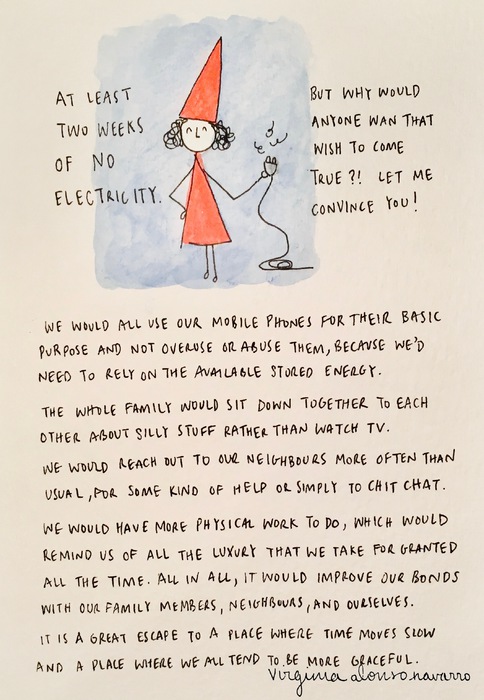 AT LEAST
TWO WEEKS
OF NO
ELECTRICITY.
BUT WHY WOULD
ANYONE WAN THAT
WISH TO COME
TRUE?! LET ME
CONVINCE YOU!
WE WOULD ALL USE OUR MOBILE PHONES FOR THEIR BASIC
PURPOSE AND NOT OVERUSE OR ABUSE THEM, BECAUSE WE'D
NEED TO RELY ON THE AVAILABLE STORED ENERGY.
THE WHOLE FAMILY WOULD SIT DOWN TOGETHER TO EACH
OTHER ABOUT SILLY STUFF RATHER THAN WATCH TV.
WE WOULD REACH OUT TO OUR NEIGHBOURS MORE OFTEN THAN
USUAL, FOR SOME KIND OF HELP OR SIMPLY TO CHIT CHAT.
WE WOULD HAVE MORE PHYSICAL WORK TO DO, WHICH WOULD
REMIND US OF ALL THE LUXURY THAT WE TAKE FOR GRANTED
ALL THE TIME. ALL IN ALL, IT WOULD IMPROVE OUR BONDS
WITH OUR FAMILY MEMBERS, NEIGHBOURS, AND OURSELVES.
IT IS A GREAT ESCAPE TO A PLACE WHERE TIME MOVES SLOW
AND A PLACE WHERE WE ALL TEND TO BE MORE GRACEFUL.
Virginia alonso navarro